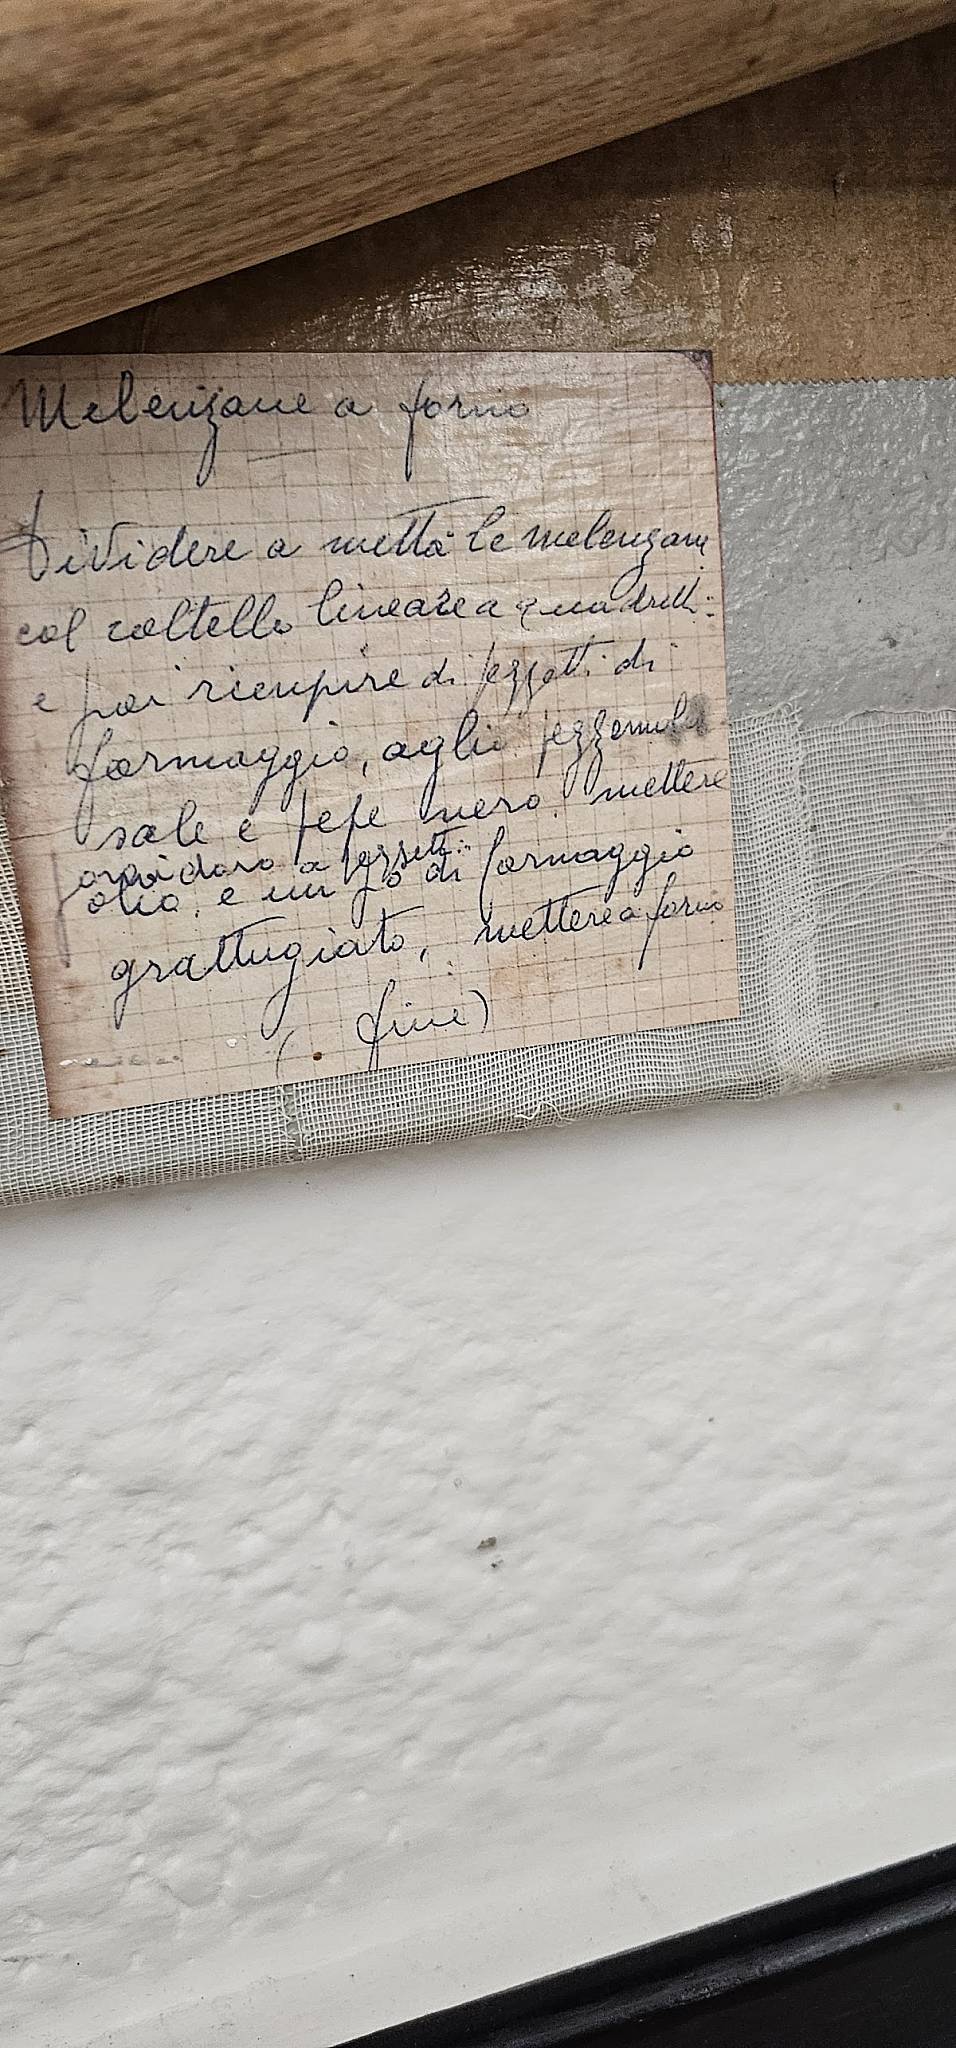 Melenzane a forno
Dividere a mettà le melenzane
col coltello lineare a quadretti
e poi riempire di pezzetti di
formaggio, aglio pezzemolo
sale e pepe nero. mettere
pomidoro a pezzetti
olio, e un pò di formaggio
grattugiato, mettere a forno
( fine)